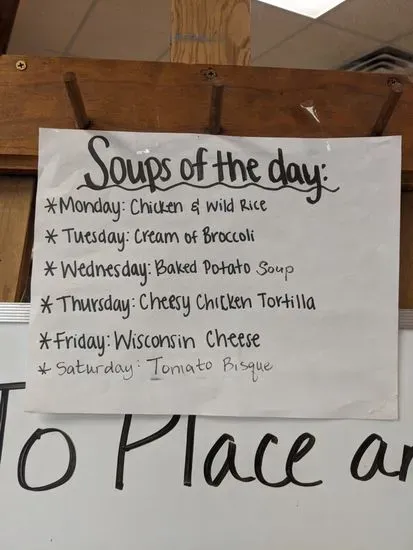 Soups of the day:
* Monday: Chicken & Wild Rice
* Tuesday: Cream of Broccoli
* Wednesday: Baked Potato Soup
* Thursday: Cheesy Chicken Tortilla
* Friday: Wisconsin Cheese
* Saturday: Tomato Bisque
To Place